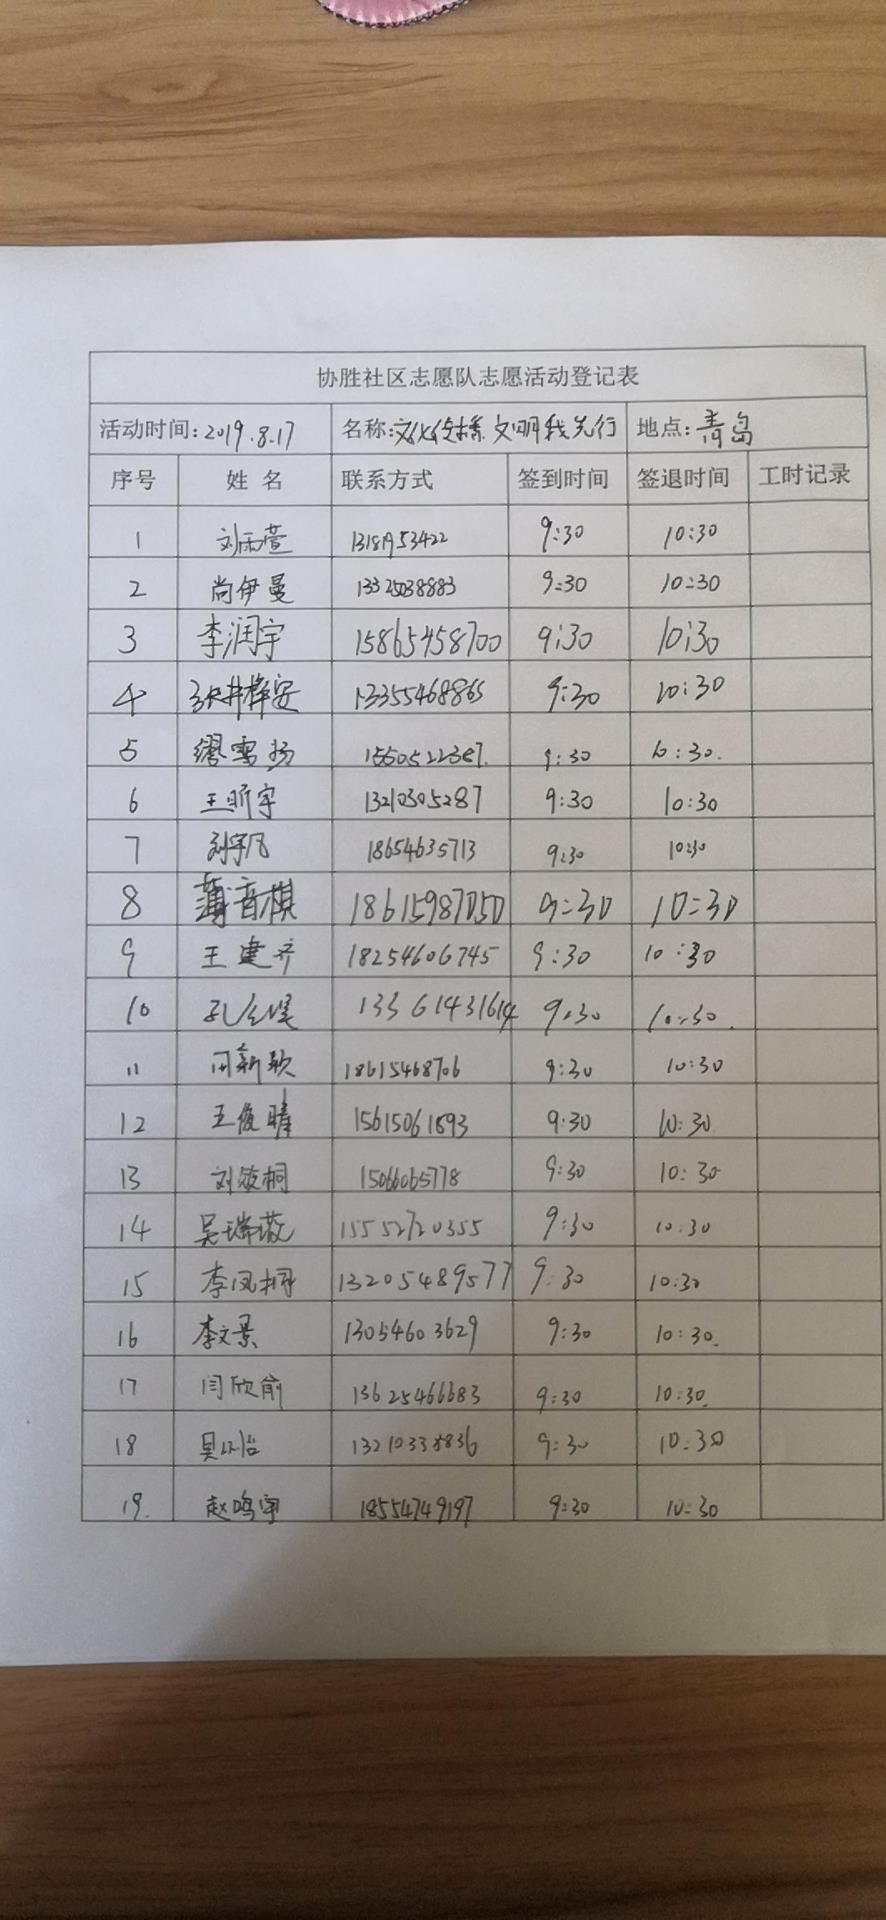 协胜社区志愿队志愿活动登记表
活动时间:2019.8.17 名称:文化传播 文明我先行 地点:青岛
序号 姓名 联系方式 签到时间 签退时间 工时记录
1 刘雨萱 9:30 10:30
2 尚伊曼 13325038883 9:30 10:30
3 李润宇 15865458700 9:30 10:30
4 13355468865 9:30 10:30
5 缪雪扬 9:30 10:30.
6 王昕宇 13210305287 9:30 10:30
7 刘宇凡 18654635713 9:30 10:30
8 薄音棋 18615987050 9:30 10:30
9 王建齐 18254606745 9:30 10:30
10 13361431614 9:30 10:30.
11 闫新歌 18615468706 9:30 10:30
12 王俊晴 15615061893 9:30 10:30
13 刘筱桐 15066065778 9:30 10:30
14 吴瑞璇 15552720355 9:30 10:30
15 李凤桐 13205489577 9:30 10:30
16 李文景 13054603629 9:30 10:30.
17 闫欣俞 13625466683 9:30 10:30.
18 13210338836 9:30 10:30
19. 赵鸣宇 18554749197 9:30 10:30